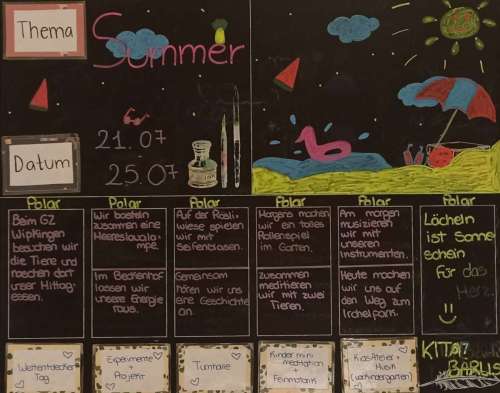 Thema
Summer
Datum
21.07
25.07
Polar
Polar
Polar
Polar
Polar
Polar
Beim GZ
Wipkingen
besuchen wir
die Tiere und
machen dort
unser Mittag-
essen.
Wir basteln
zusammen eine
Meereslaxla
mpe.
Im Beckenhof
lassen wir
unsere Energie
raus.
Auf der Rösli-
wiese spielen
wir mit
Seifenblasen.
Gemeinsam
hören wir uns
eine Geschichte
an.
Morgens machen
wir ein tolles
Rollenspiel
im Garten.
zusammen
meditieren
wir mit zwei
Tieren.
Am morgen
musizieren
wir mit
unseren
Instrumenten.
Heute machen
wir uns auf
den Weg zum
Irchelpark.
Lächeln
ist Sonne
schein
für das
Herz.
Weltentdecker
Tag
Experimente
+
Projekt
Turnhalle
Kinder mini
meditation
+
Feinmotorik
KiasAtelier +
Musik
(Waldkindergarten)
KITA
BARUS